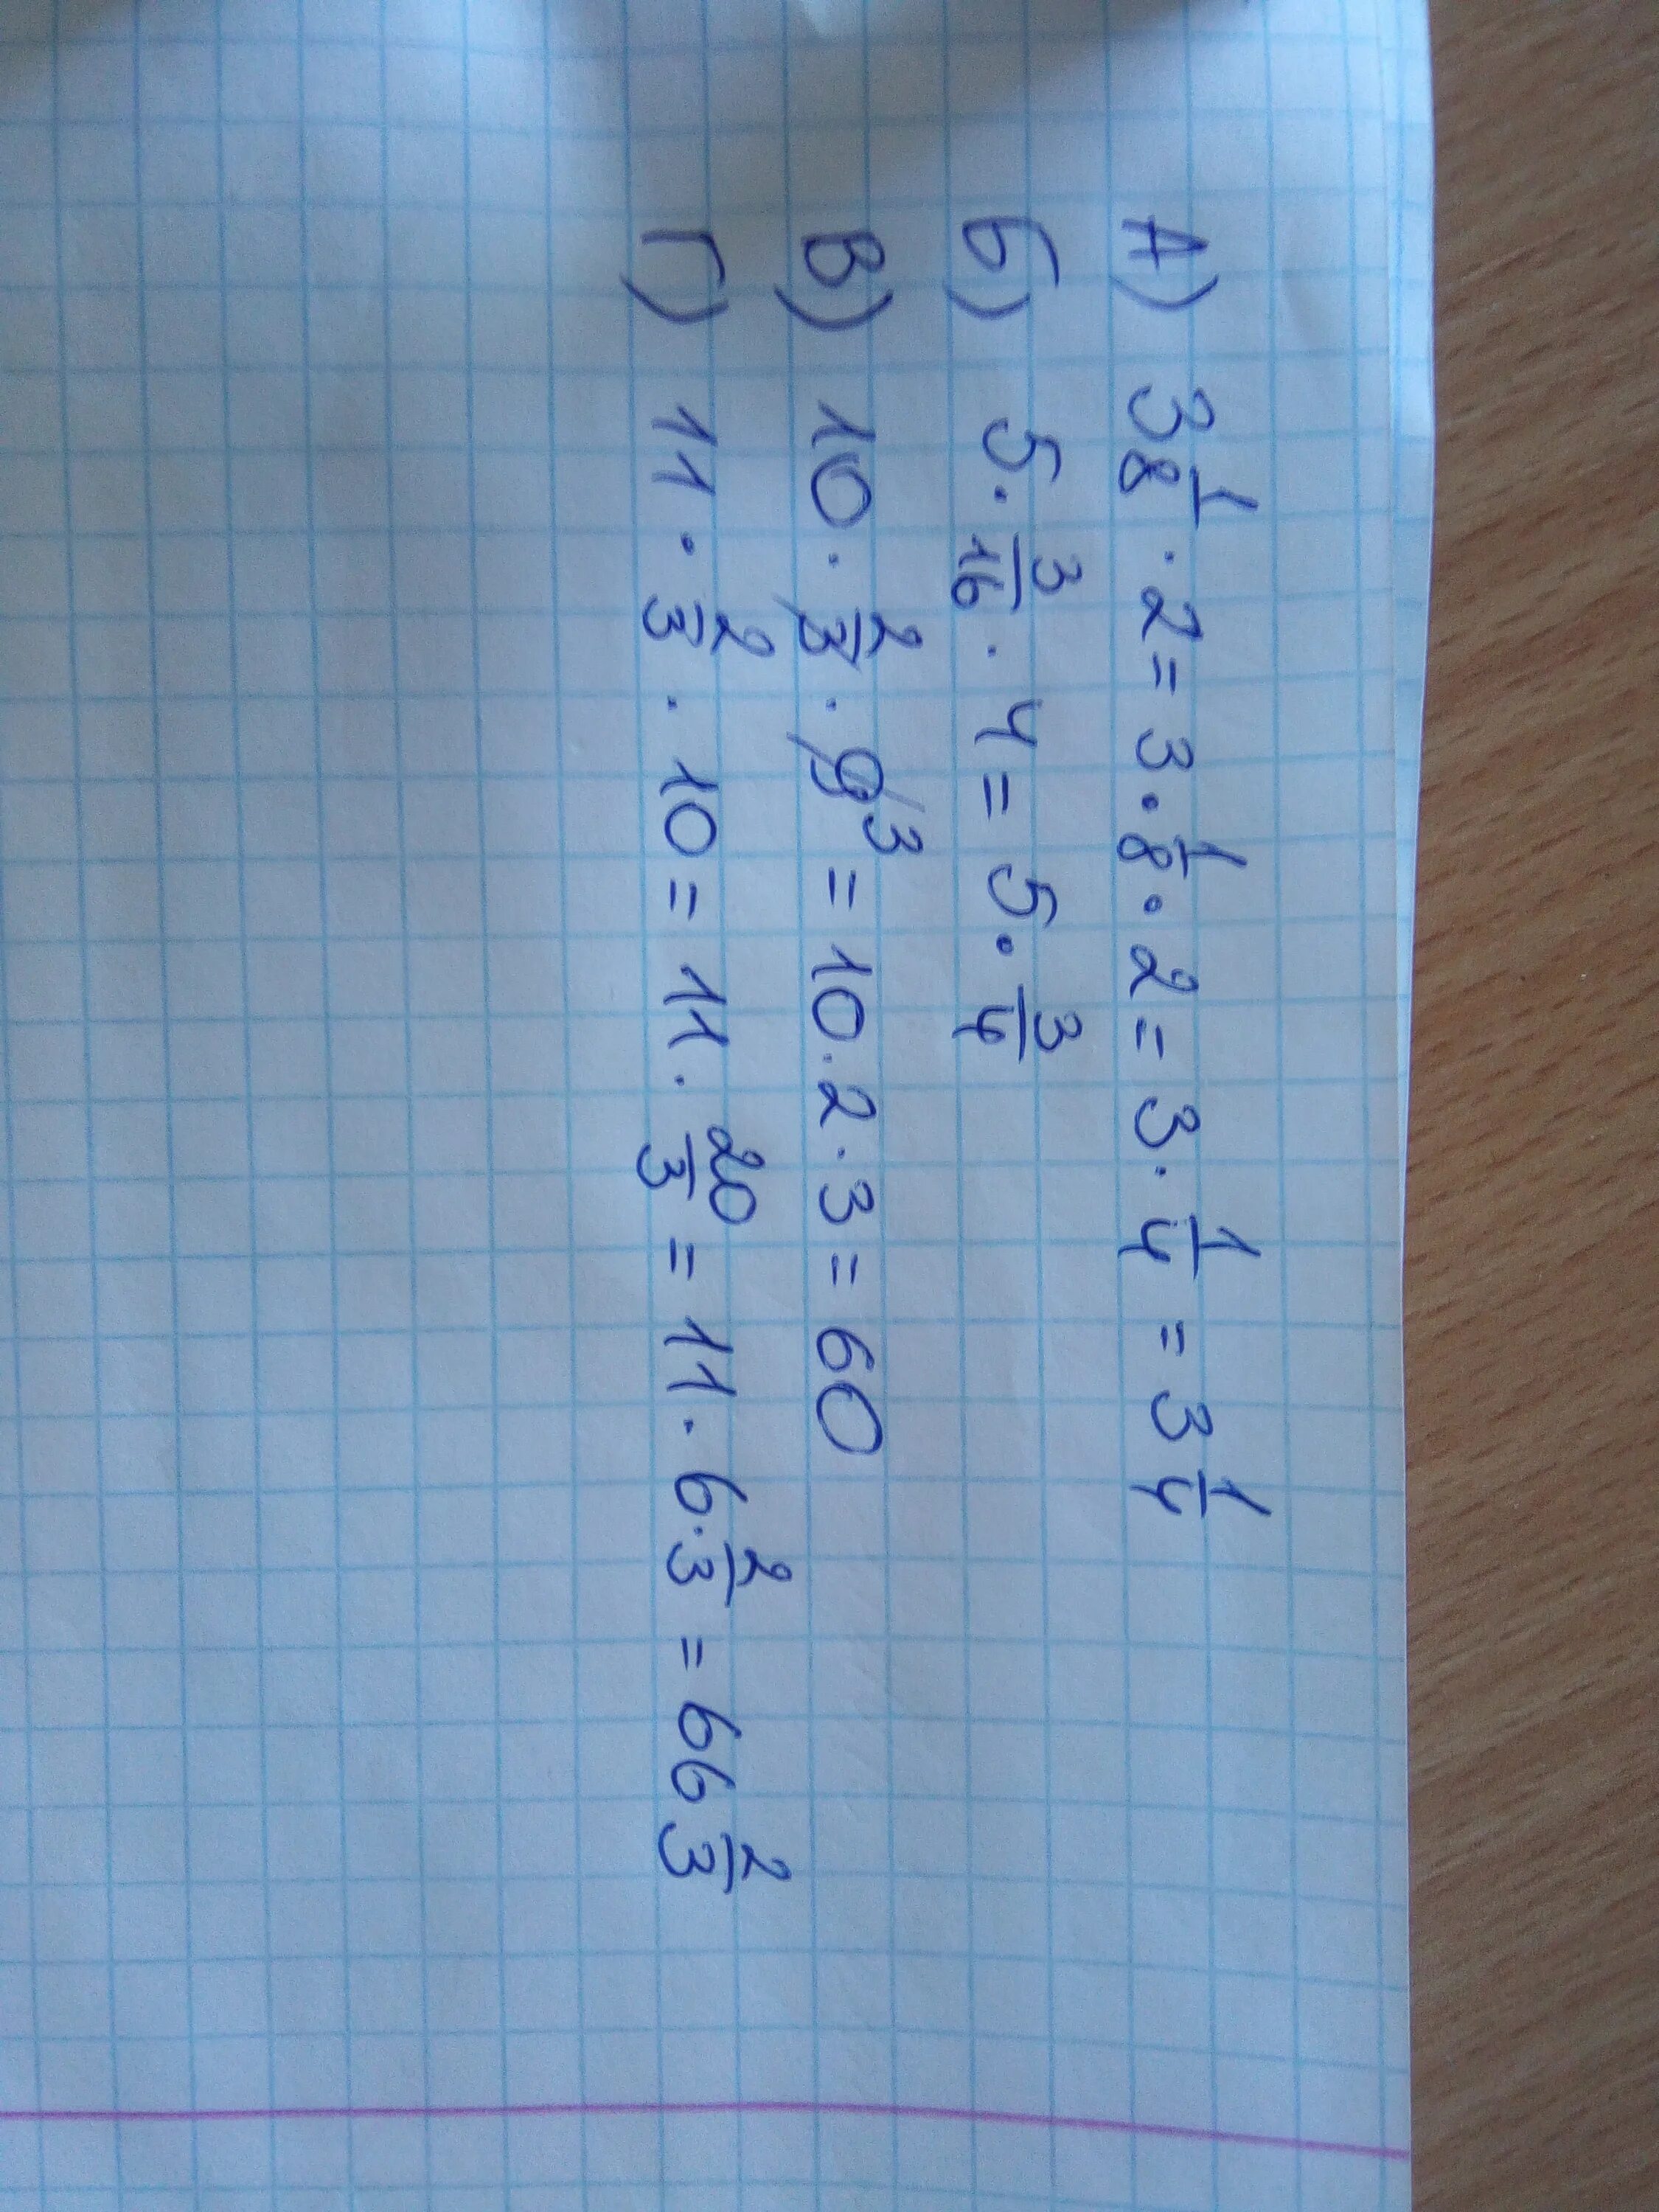 А) 3 1/8 · 2 = 3 · 1/8 · 2 = 3 · 1/4 = 3 1/4
Б) 5 · 3/16 · 4 = 5 · 3/4
В) 10 · 2/3 · 9 3 = 10 · 2 · 3 = 60
Г) 11 · 2/3 · 10 = 11 · 20/3 = 11 · 6 · 2/3 = 66 2/3